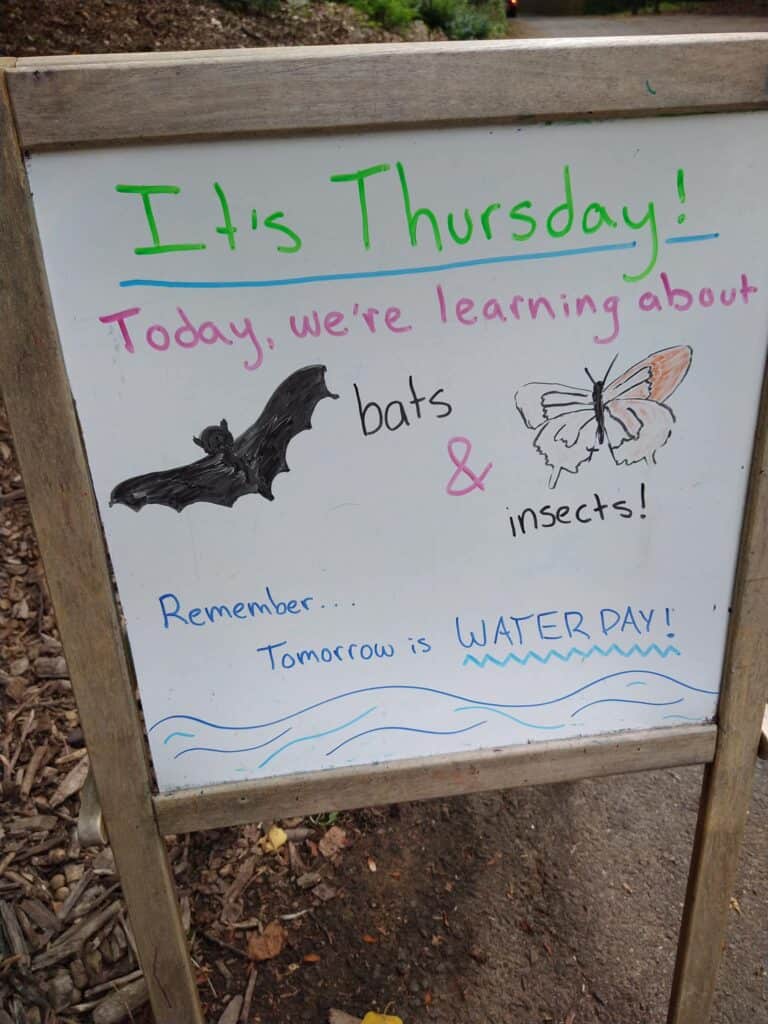 It's Thursday!
Today, we're learning about
bats
&
insects!
Remember...
Tomorrow is WATER DAY!